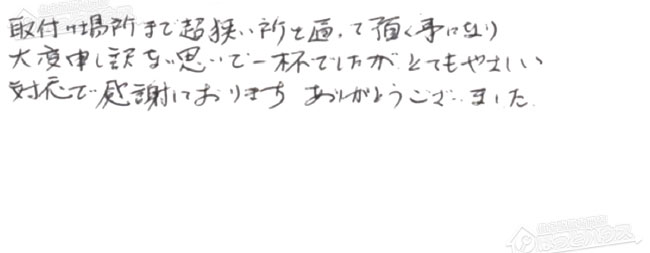 取付け場所まで超狭い所を通って頂く事になり
大変申し訳ない思いで一杯でしたが とてもやさしい
対応で感謝しております ありがとうございました